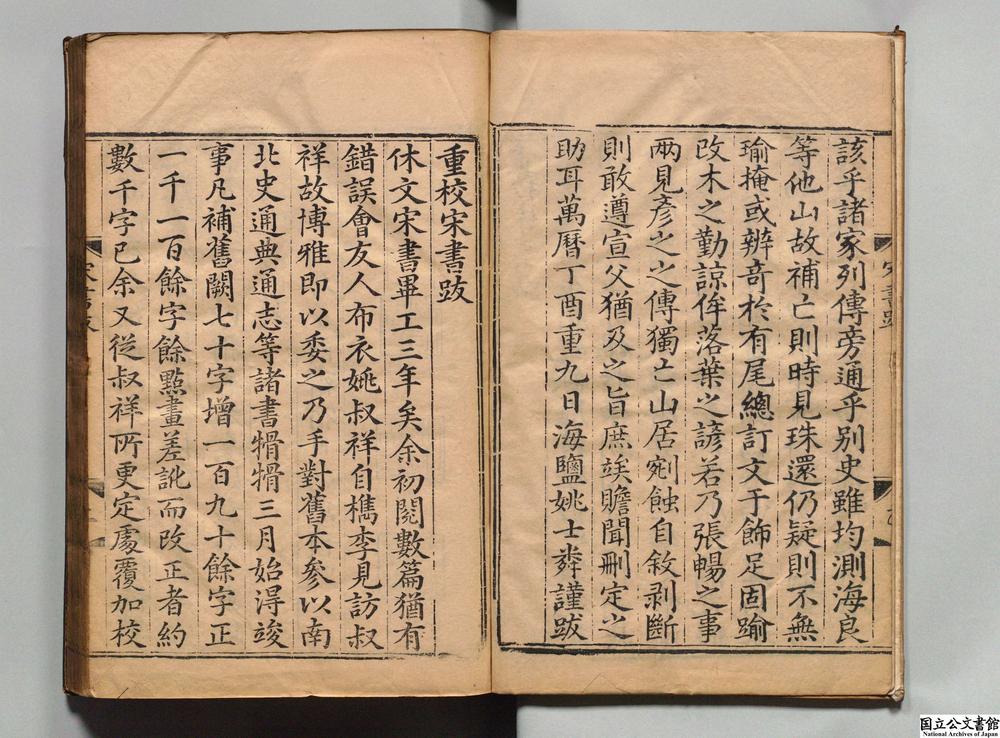 該乎諸家列傳旁通乎別史雖均測海良
等他山故補亡則時見珠還仍疑則不無
瑜掩或辨竒於有尾總訂文于飾足固踰
改木之勤諒侔落葉之諺若乃張暢之事
兩見彦之之傳獨亡山居剜蝕自敘剥斷
則敢遵宣父猶及之旨庶竢贍聞刪定之
助耳萬曆丁酉重九日海鹽姚士粦謹跋
重校宋書跋
休文宋書畢工三年矣余初閱數篇猶有
錯誤會友人布衣姚叔祥自檇李見訪叔
祥故博雅即以委之乃手對舊本參以南
北史通典通志等諸書搰搰三月始得竣
事凡補舊闕七十字增一百九十餘字正
一千一百餘字餘點畫差訛而改正者約
數千字已余又從叔祥所更定處覆加校
国立公文書館
National Archives of Japan